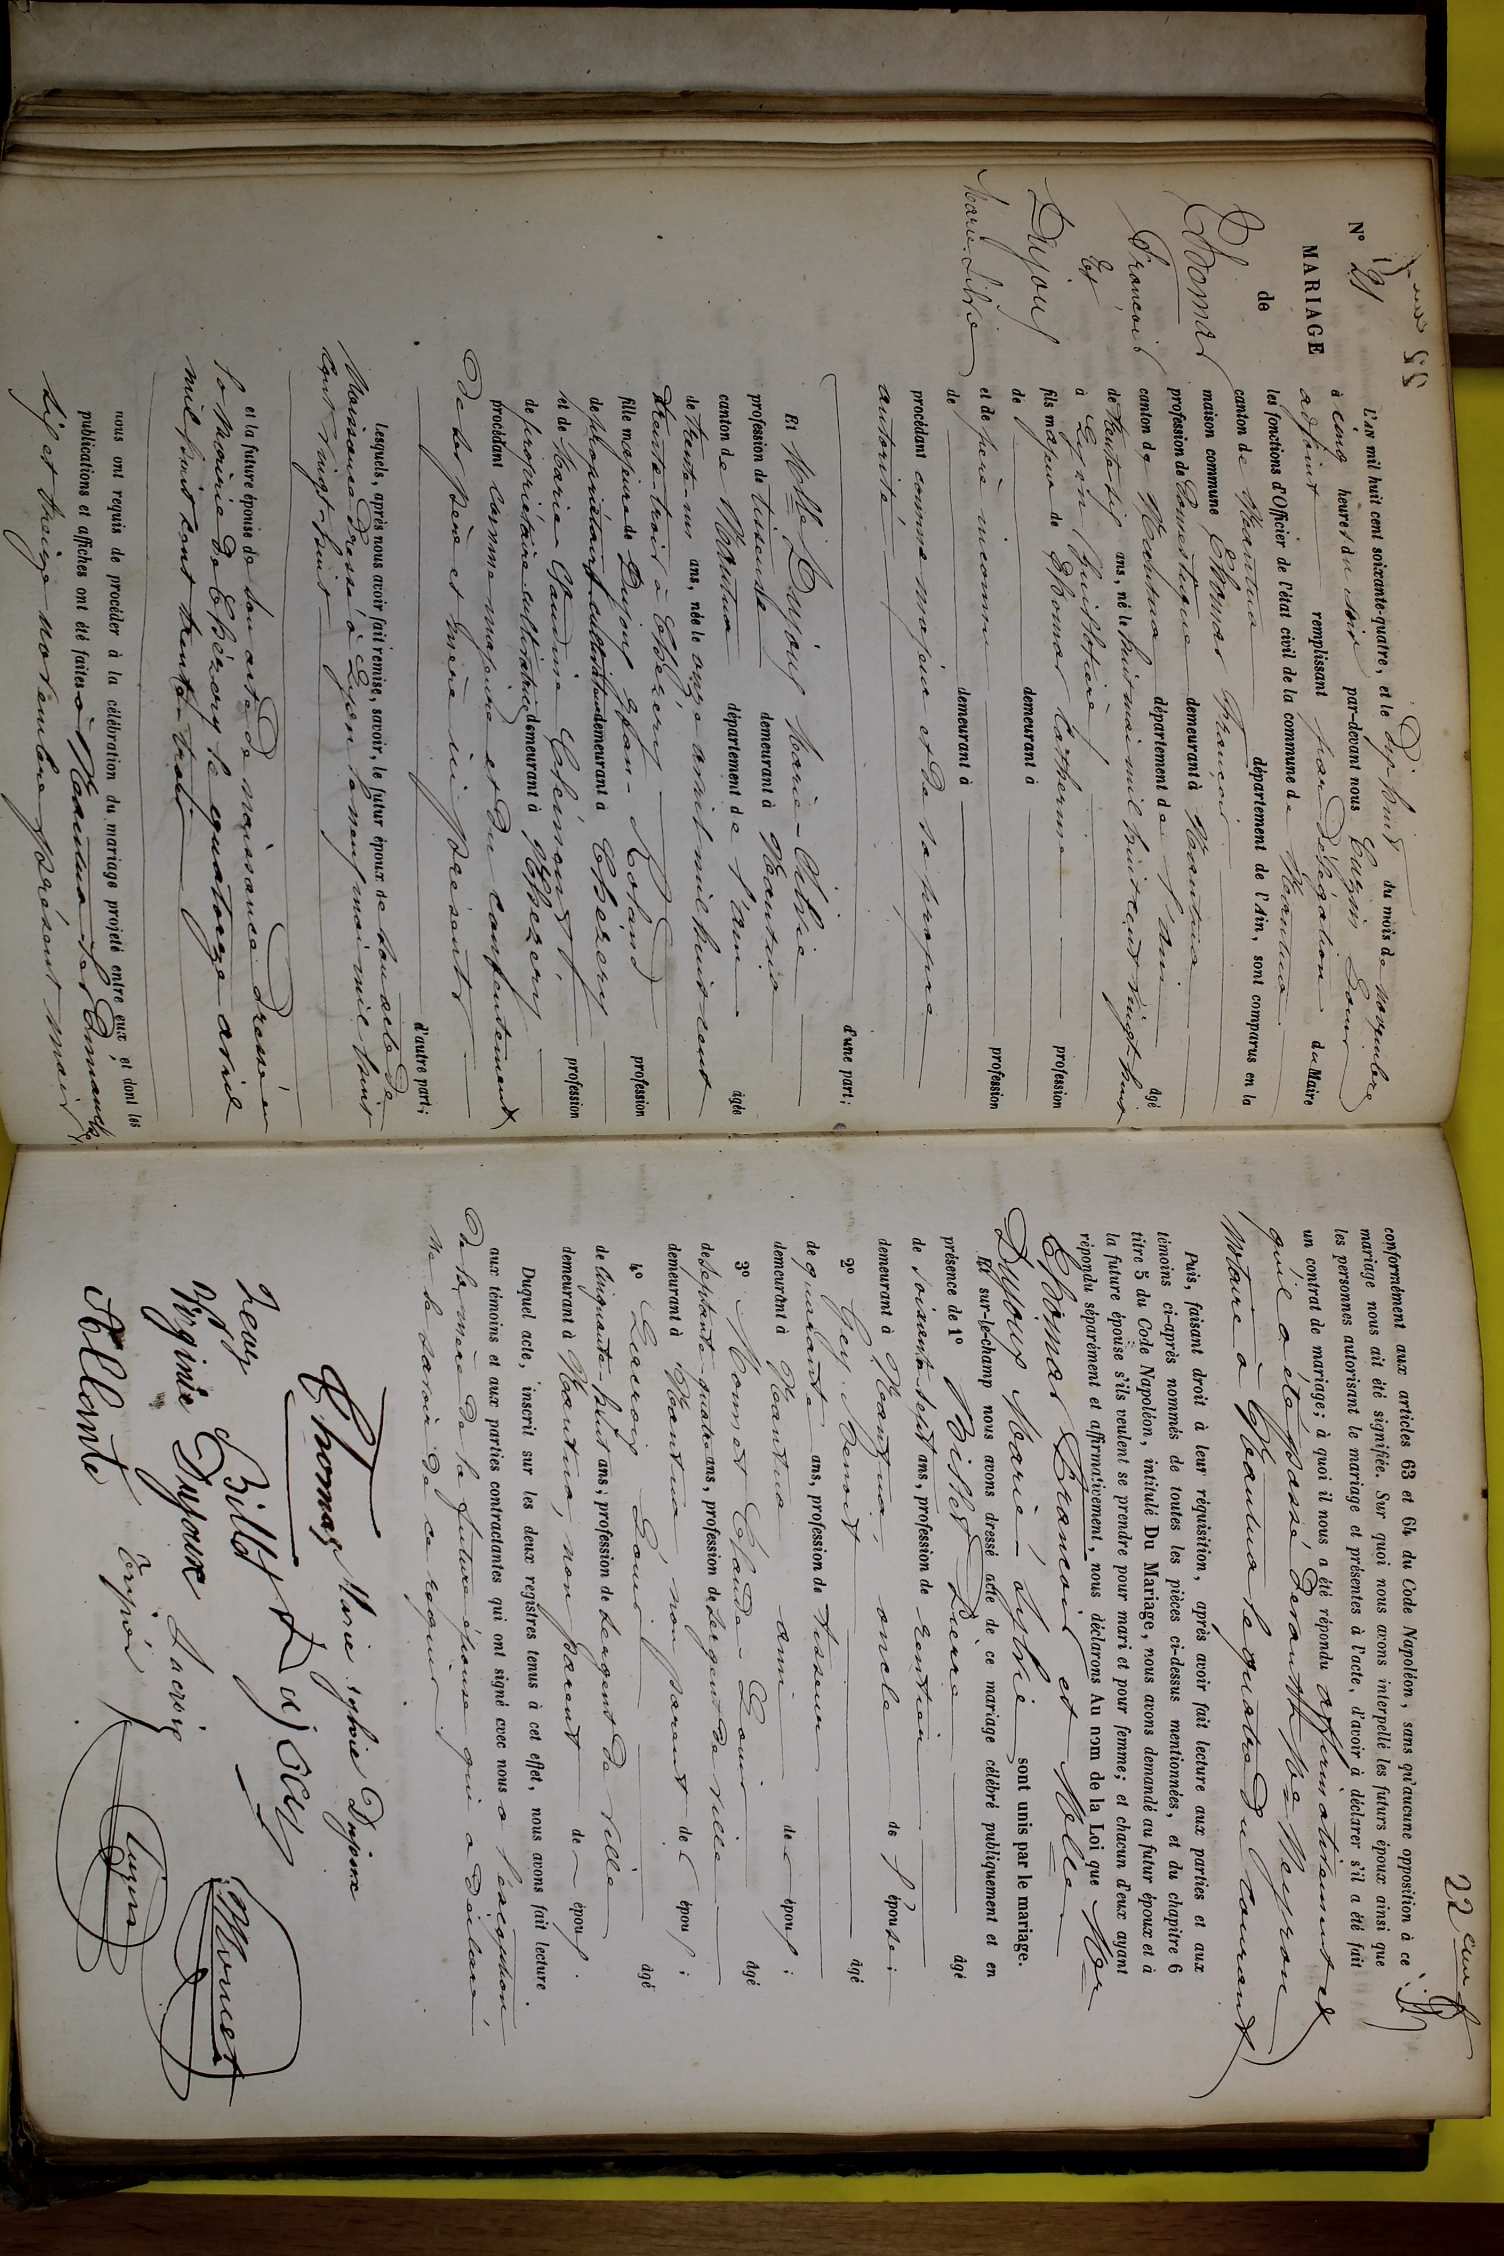 N° 21
MARIAGE
de
Thomas
François
Et
Dujoux
Marie-Silvie
L'AN mil huit cent soixante-quatre, et le Dix-huit du mois de novembre
à cinq heures du soir par-devant nous Eugène
adjoint remplissant par Délégation du Maire
les fonctions d'Officier de l'état civil de la commune de Nantua
canton de Nantua département de l'Ain, sont comparus en la
maison commune, Thomas François
profession de Domestique demeurant à Nantua
canton de Nantua département de l'Ain âgé
de trente six ans, né le huit mai mil huit cent vingt huit
à Lyon
fils majeur de Thomas Catherine profession
de demeurant à
et de père inconnu profession
de demeurant à
procédant comme majeur et de sa propre
autorité
d'une part;
Et Melle Dujoux Marie-Silvie
profession de Tisseuse demeurant à Nantua
canton de Nantua département de l'Ain âgée
de trente-un ans, née le onze avril mil huit cent
trente trois à Chézery
fille majeure de Dujoux Jean-Roland profession
de propriétaire cultivateur demeurant à Chézery
et de Marie Claudine profession
de propriétaire cultivatrice demeurant à Chézery
procédant comme majeure et du consentement
de ses père et mère ici présents
d'autre part;
Lesquels, après nous avoir fait remise, savoir, le futur époux de son acte de
Naissance Dressé à Lyon le neuf mai mil huit
cent vingt-huit
et la future épouse de son acte de naissance dressé en
la Mairie de Chézery le quatorze avril
mil huit cent trente trois
nous ont requis de procéder à la célébration du mariage projeté entre eux et dont les
publications et affiches ont été faites à Nantua les Dimanches
six et treize novembre présent mois,
22
conformément aux articles 63 et 64 du Code Napoléon, sans qu'aucune opposition à ce
mariage nous ait été signifiée. Sur quoi nous avons interpellé les futurs époux ainsi que
les personnes autorisant le mariage et présentes à l'acte, d'avoir à déclarer s'il a été fait
un contrat de mariage; à quoi il nous a été répondu affirmativement et
qu'il a été passé devant Me Neyron
Notaire à Nantua le quatre du courant
Puis, faisant droit à leur réquisition, après avoir fait lecture aux parties et aux
témoins ci-après nommés de toutes les pièces ci-dessus mentionnées, et du chapitre 6
titre 5 du Code Napoléon, intitulé Du Mariage, nous avons demandé au futur époux et à
la future épouse s'ils veulent se prendre pour mari et pour femme; et chacun d'eux ayant
répondu séparément et affirmativement, nous déclarons Au nom de la Loi que Mr
Thomas François et Melle
Dujoux Marie-Silvie sont unis par le mariage.
Et sur-le-champ nous avons dressé acte de ce mariage célébré publiquement et en
présence de 1° Billet Pierre âgé
de soixante sept ans, profession de rentier
demeurant à Nantua, oncle de l'épouse;
2° Gey Benoit âgé
de quarante ans, profession de tisseur
demeurant à Nantua ami de l'époux;
3° Monnet Claude-Louis âgé
de septante-quatre ans, profession de sergent de ville
demeurant à Nantua, non parent de l'époux;
4° Lacroix Louis âgé
de cinquante-huit ans; profession de sergent de ville
demeurant à Nantua, non parent de l'époux.
Duquel acte, inscrit sur les deux registres tenus à cet effet, nous avons fait lecture
aux témoins et aux parties contractantes qui ont signé avec nous à l'exception
de la mère de la future épouse qui a déclaré
ne le savoir de ce requis.
Thomas Marie sylvie Dujoux
Billet
Monnet
Virginie Dujoux Lacroix
Allante